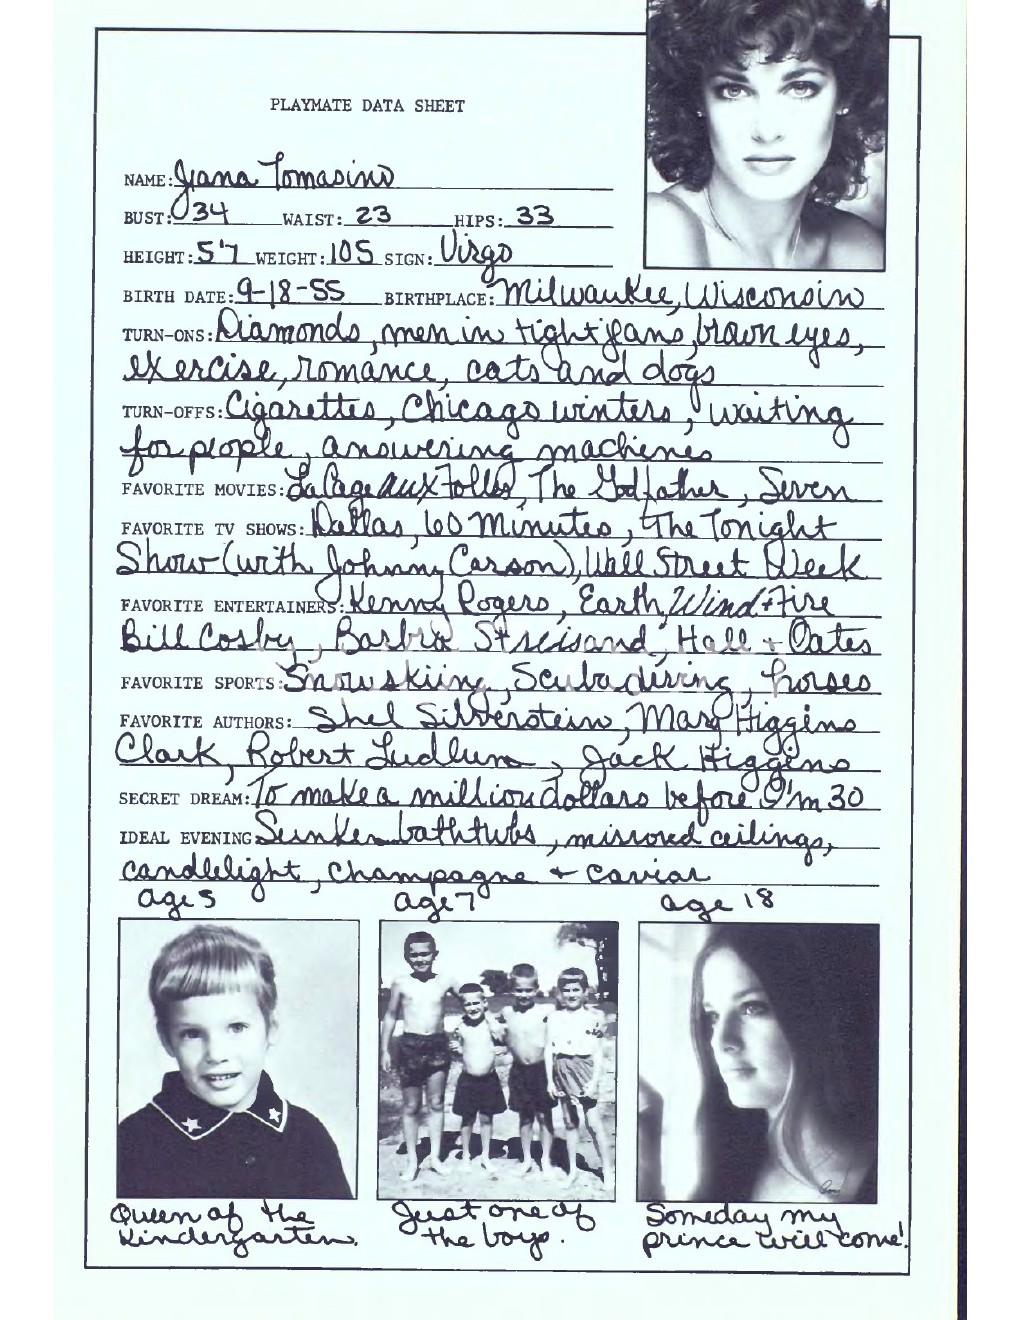 PLAYMATE DATA SHEET
NAME: Jana Tomasino
BUST: 34 WAIST: 23 HIPS: 33
HEIGHT: 5'7 WEIGHT: 105 SIGN: Virgo
BIRTH DATE: 9-18-55 BIRTHPLACE: Milwaukee, Wisconsin
TURN-ONS: Diamonds, men in tight jeans, brown eyes,
exercise, romance, cats and dogs
TURN-OFFS: Cigarettes, Chicago winters, waiting
for people, answering machines
FAVORITE MOVIES: La Cage aux Folles, The Godfather, Seven
FAVORITE TV SHOWS: Dallas, 60 Minutes, The Tonight
Show (with Johnny Carson), Wall Street Week
FAVORITE ENTERTAINERS: Kenny Rogers, Earth, Wind + Fire
Bill Cosby, Barbra Streisand, Hall + Oates
FAVORITE SPORTS: Snow skiing, Scuba diving, horses
FAVORITE AUTHORS: Shel Silverstein, Mary Higgins
Clark, Robert Ludlum, Jack Higgins
SECRET DREAM: To make a million dollars before I'm 30
IDEAL EVENING Sunken bathtubs, mirrored ceilings,
candlelight, champagne + caviar
age 5 age 7 age 18
Queen of the
Kindergarten.
Just one of
the boys.
Someday my
prince will come!